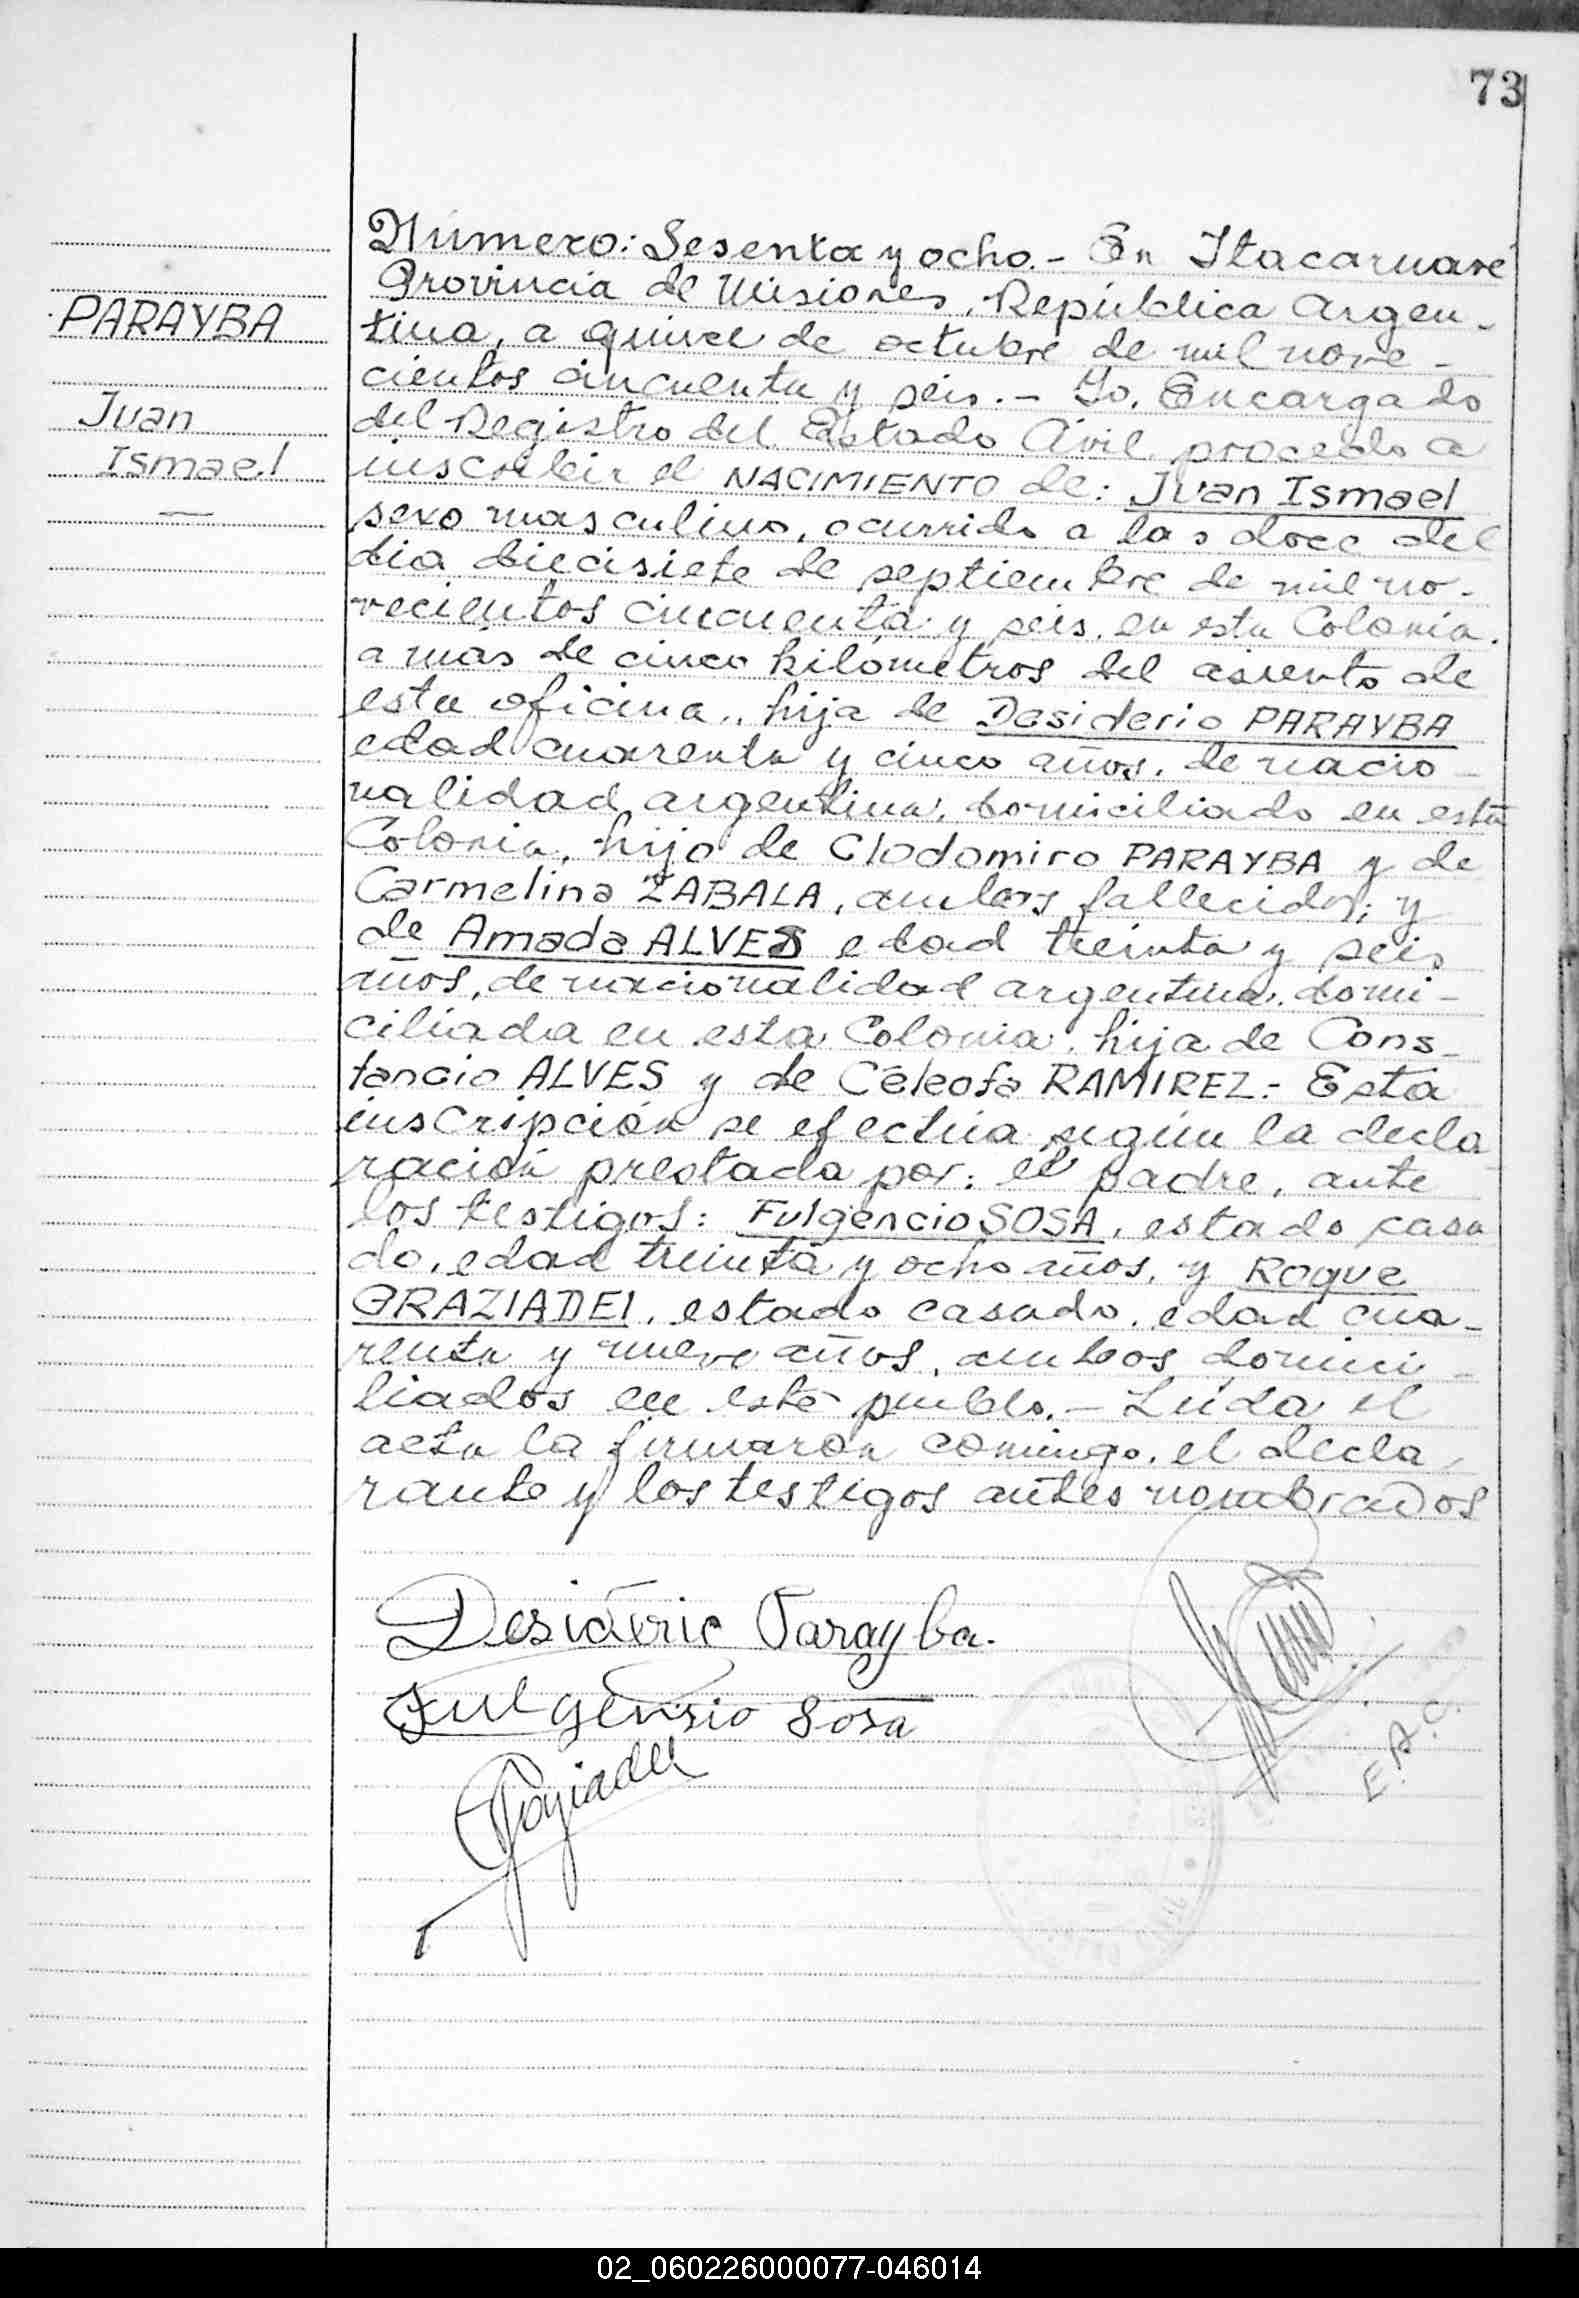 73
Número: Sesenta y ocho.- En Itacaruaré
Provincia de Misiones, República Argen-
tina, a quince de octubre de mil nove-
cientos cincuenta y seis.- Yo, Encargado
del Registro del Estado Civil procedo a
inscribir el NACIMIENTO de: Juan Ismael
sexo masculino, ocurrido a las doce del
dia diecisiete de septiembre de mil no-
vecientos cincuenta y seis, en esta Colonia.
a más de cinco kilómetros del asiento de
esta oficina, hija de Desiderio PARAYBA
edad cuarenta y cinco años, de nacio-
nalidad argentina, domiciliado en esta
Colonia, hijo de Clodomiro PARAYBA y de
Carmelina ZABALA, ambos fallecidos; y
de Amada ALVES edad treinta y seis
años, de nacionalidad argentina, domi-
ciliada en esta Colonia, hija de Cons-
tancio ALVES y de Céleofa RAMIREZ.- Esta
inscripción se efectúa según la decla
ración prestada por: el padre, ante
los testigos: Fulgencio SOSA, estado casa
do, edad treinta y ocho años, y Roque
GRAZIADEI, estado casado, edad cua-
renta y nueve años, ambos domici-
liados en este pueblo.- Leída el
acta la firmaron conmigo, el decla
rante y los testigos antes nombrados
PARAYBA
Juan
Ismael
Desiderio Parayba.
Fulgensio Sosa
E.A.C.
02_060226000077-046014